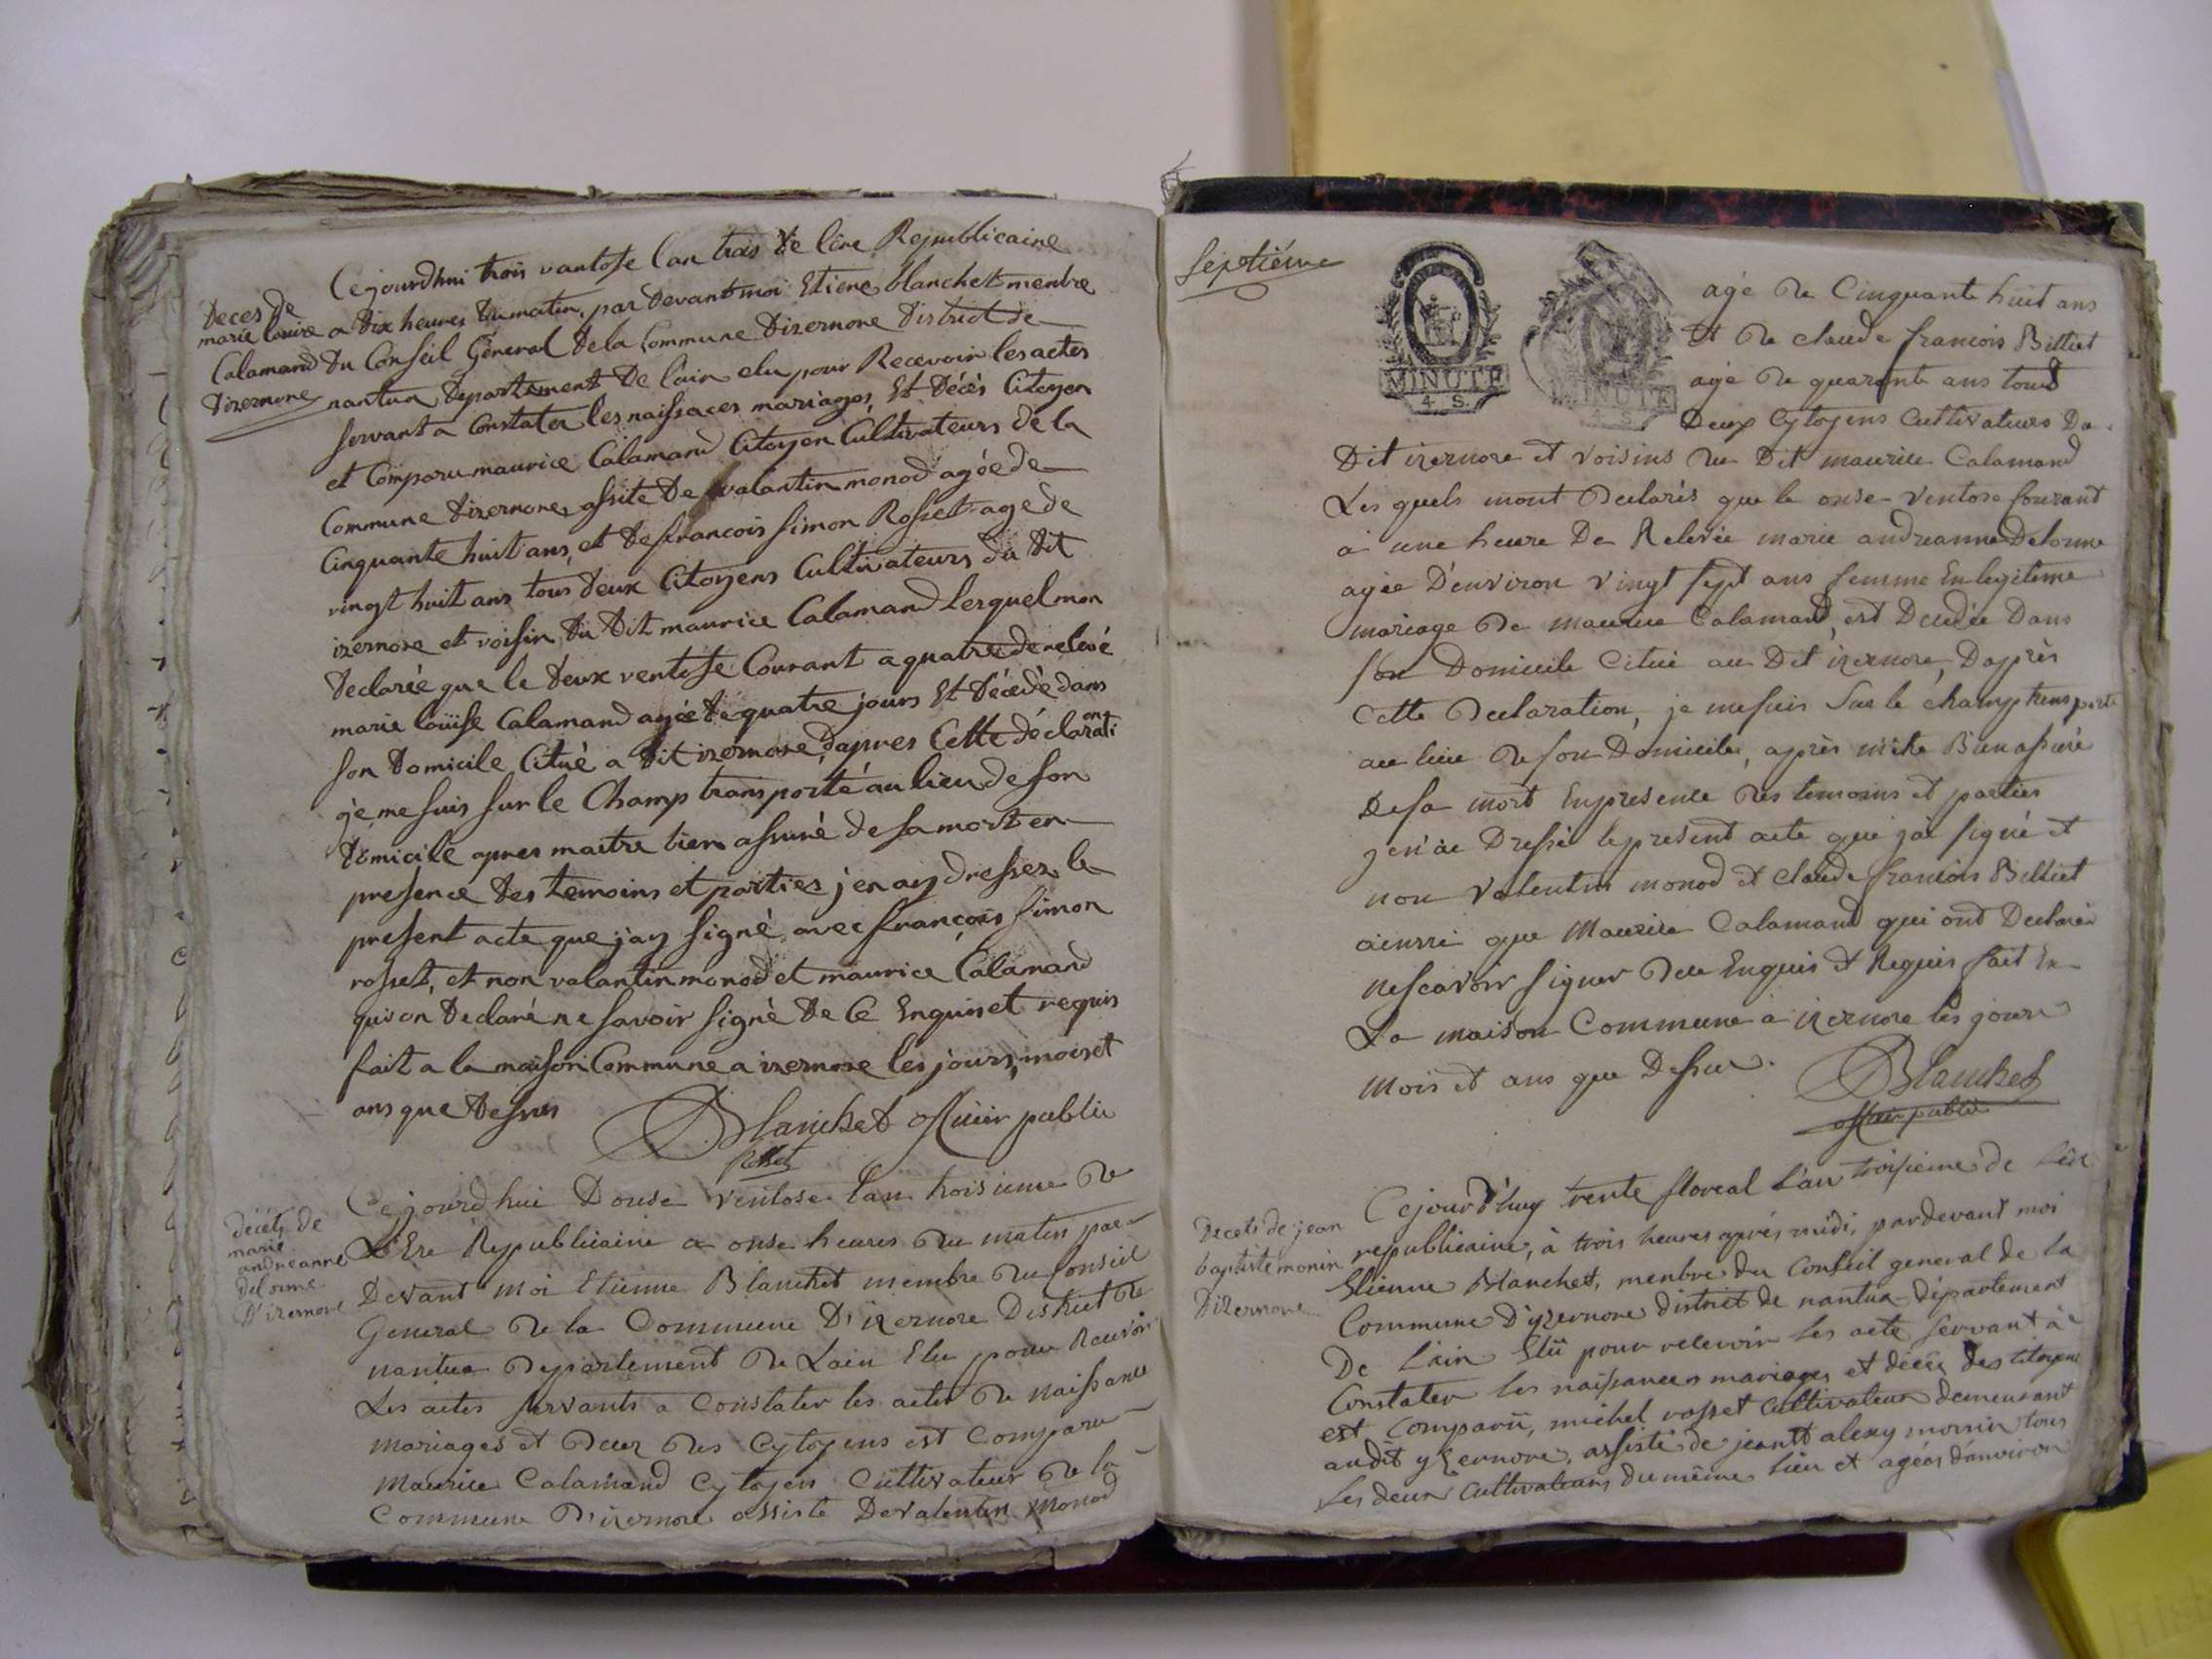 Cejourdhui trois vantose l'an trois de lère Republicaine
Deces de
marie louise
Calamand
Dizernore
a dix heures du matin, par devant moi Etiene blanchet menbre
du Conseil Géneral de la Commune dizernore district de
nantua departement de l'ain elu pour Recevoir les actes
servant a Constater les naissaces mariages, Et Décès Citoyen
et Comparu maurice Calamand Citoyen Cultivateurs de la
Commune dizernore, assite de valantin monod agée de
Cinquante huit ans, et de francois simon Rosset age de
vingt huit ans tous deux Citoyens Cultivateurs du dit
izernore et voisin du dit maurice Calamand lesquel mon
declarée que le deux ventose Courant a quatre de relevé
marie louïse Calamand agée de quatre jours Et décédè dans
son domicile Citué a dit izernore, d'apres Cette déclarati on
je me suis sur le Champ transporté au lieu de son
domicile apres maitre bien assuré de sa mort en
presence des temoins et parties j'en ay dresser le
present acte que jay signé avec françois simon
rosset, et non valantin monod et maurice Calamand
qui on declaré ne savoir signé de Ce Enquis et requis
fait a la maison Commune a izernore les jours, mois et
ans que dessus
Blanchet officier public
rosset
décéts de
marie
andreanne
delorme
D'izernore
Cejourdhui Douse Ventose lan troisieme de
L'Ere Republicaine a onse heures du matin par
Devant moi Etienne Blanchet membre du Conseil
General de la Commune D'izernore District de
nantua departement de Lain Elu pour Recevoir
Les actes servants a Constater les actes de naissance
mariages et deces des Cytoyens est Comparu
Maurice Calamand Cytoyen Cultivateur de la
Commune D'izernore assisté De valentin Monod
septième
MINUTE
4. S.
MINUTE
4 S.
agé de Cinquante huit ans
Et de claude francois Billiet
agé de quarante ans tout
Deux Cytoyens Cultivateurs Du
Dit izernore et voisins du Dit maurice Calamand
Les quels mont Declarés que le onse Ventose Courant
a une heure De Relevée marie andreanne Delorme
agée D'environ vingt sept ans femme En legitime
mariage De maurice Calamand, est Decedée Dans
son Domicile Citué au Dit izernore, D'après
Cette Declaration, je me suis Sur le champ transporté
au lieu de son Domicile, après m'etre Bien assuré
De sa mort En presence des temoins et parties
j'en ai Dressé le present acte que j'ai signé et
non Valentin monod et claude francois Billiet
ainssi que Maurice Calamand qui ont Declarés
ne scavoir signer de ce Enquis et Requis fait En
La maison Commune a izernore les jours
Mois et ans que Dessus.
Blanchet
officier public
Decets de jean
baptiste monin
Dizernore
Cejourd'huy trente floreal l'an troisieme de l'ére
republicaine, à trois heures après midi, pardevant moi
Etienne Blanchet, menbre du Conseil general de la
Commune D'yzernore district de nantua département
De l'ain Elû pour recevoir les acte servant à
Constater les naissances mariages et décés des citoyens
est Comparû, michel rosset Cultivateur demeurant
audit yzernore, assisté de jean alexy monin tous
les deux Cultivateurs du même lieu et agéés d'anviron